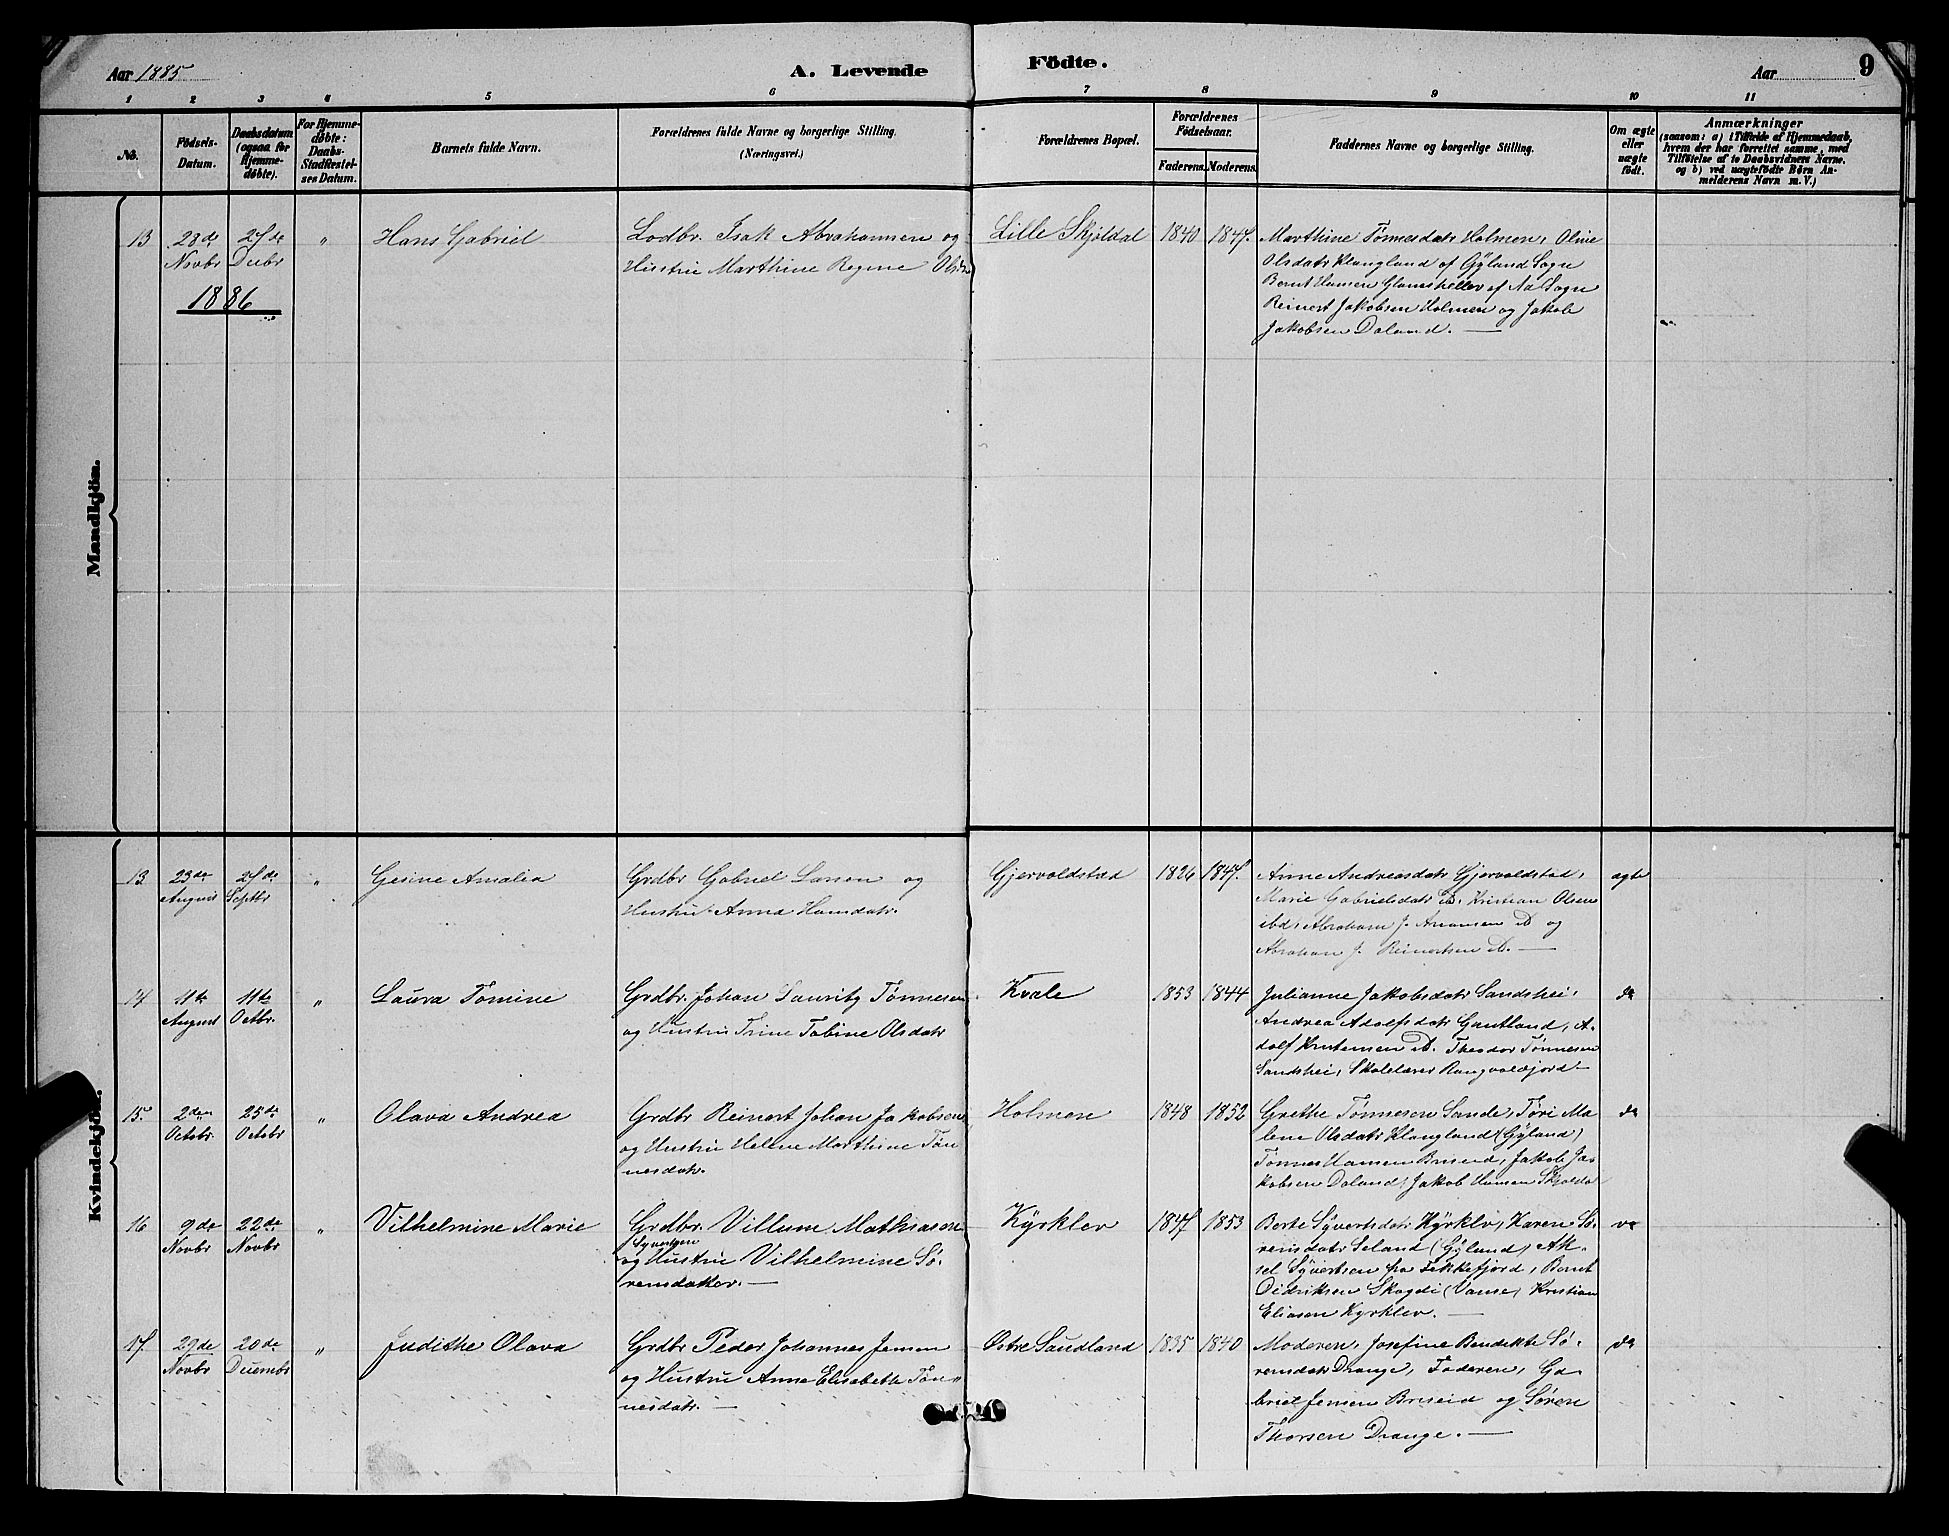 Aar 1885
A. Levende Födte.
Aar 9
1 2 3 4 5 6 7 8 9 10 11
No.
Födsels-
Datum.
Daabsdatum
(ogsaa for
Hjemme-
döbte).
For Hjemme-
döbte:
Daabs-
Stadfæstel-
ses Datum.
Barnets fulde Navn.
Forældrenes fulde Navne og borgerlige Stilling.
(Næringsvei.)
Forældrenes Bopæl.
Forældrenes
Födselsaar.
Faderens. Moderens.
Faddernes Navne og borgerlige Stilling.
Om ægte
eller
uægte
födt.
Anmærkninger
(saasom: a) i Tilfælde af Hjemmedaab,
hvem der har forrettet samme, med
Tilföielse af to Daabsvidners Navne.
og b) ved uægtefödte Börn An-
melderens Navn m. V.)
Mandkjön.
13
23de
Novbr
27de
Decbr
"
Hans Gabriel
Lodbr. Isak Abrahamsen og
Hustru Marthine Regine Olsdr
Lille Skjöldal
1840
1847.
Marthine Tönnesdatr Holmen, Oline
Olsdatr Klungland af Gyland Sogn
Bernt Hansen Glamsheller af Aa Sogn
Reinert Jakobsen Holmen og Jakob
Jakobsen Daland. —
1886
Kvindekjön.
13
23de
August
27de
Septbr
"
Gesine Amalia
Grdbr Gabriel Larsen og
Hustru Anna Hansdatr.
Gjervoldstad
1826
1847.
Anne Andreasdatr Gjervoldstad,
Marie Gabrielsdatr ib. Kristian Olsen
ibd, Abraham J. ib og
Abraham J. Reinertsen ib. —
ægte
14
11te
August
11te
Octbr.
"
Laura Tomine
Grdbr. Johan Lauritz Tönnesen
og Hustru Trine Tobine Olsdatr
Kvale
1853
1844
Julianne Jakobsdatr Sandshei,
Andrea Adolfsdatr Gautland, A-
dolf ib. Theodor Tönnesen
Sandshei, Skolelærer Rangvaldfjord —
do
15.
2den
Octbr.
25de
Octbr
"
Olava Andrea
Grdbr Reinert Johan Jakobsen
og Hustru Helene Marthine Tön
nesdatr.
Holmen
1848
1852
Grethe Tönnesen Sande, Töri Ma
lene Olsdatr Klungland (Gyland)
Tönnes Hansen Briseid, Jakob Ja-
kobsen Daland, Jakob Hansen Skjoldal
do
16
9de
Novbr
22de
Novbr
"
Vilhelmine Marie
Grdbr. Villum Mathiasen
Syvertsen
og Hustru Vilhelmine Sö-
rensdatter. —
Kyrklev
1847
1853
Berte Syvertsdatr Kyrklv, Karen Sö-
rensdatr Seland (Gyland) Ak-
sel Syvertsen fra Fekkefjord, Bernt
Didriksen Skogdi (Vanse) Kristian
Eliasen Kyrklev. —
17
29de
Novbr
20de
Decembr
"
Judithe Olava
Grdbr Peder Johannes Jensen
og Hustru Anna Elisabeth Tön-
nesdatr. —
Østre Saudland
1835
1840
Moderen, Josefine Bendikte Sö-
rensdatr Drange, Faderen, Ga-
briel Jensen Briseid og Sören
Thorsen Drange. —
do